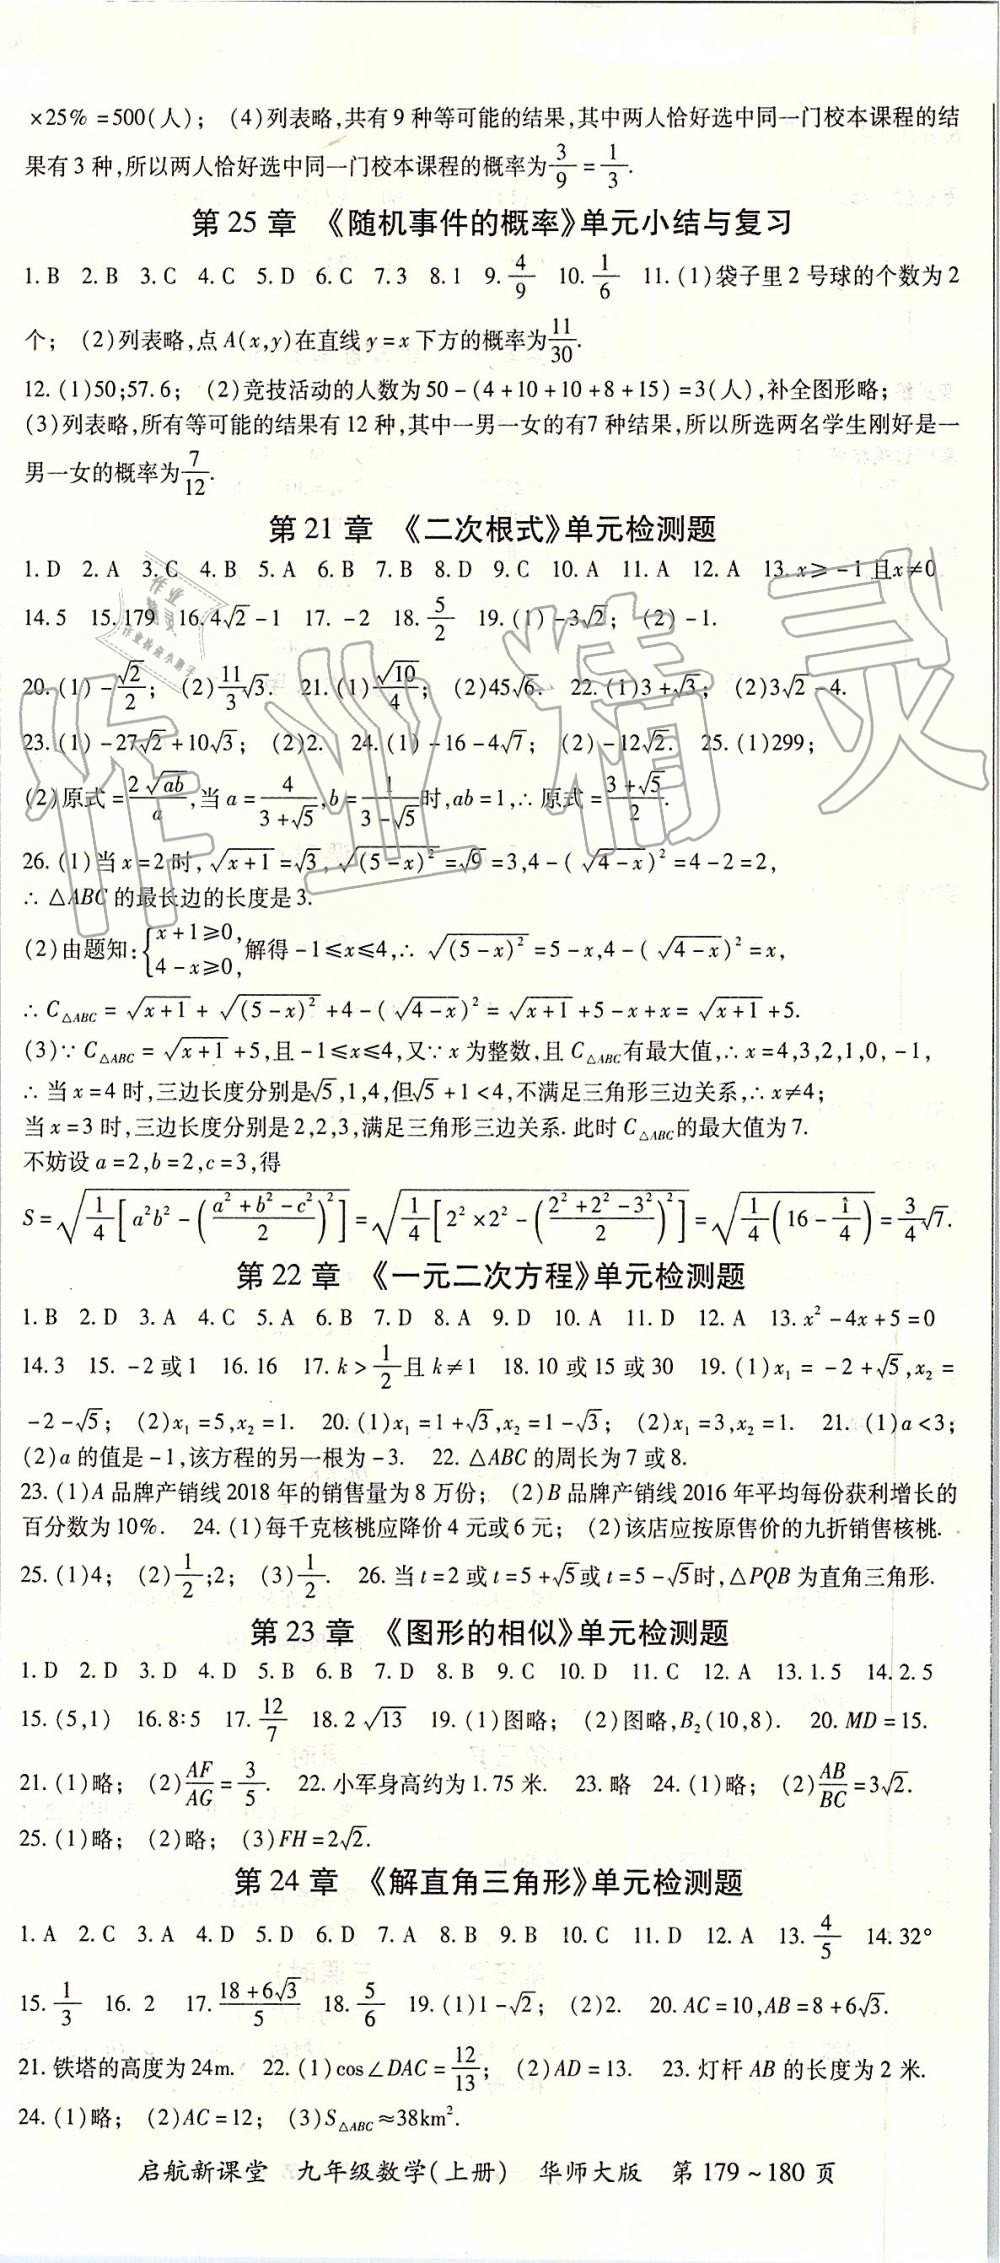 ×25% =500(人); (4)列表略,共有9种等可能的结果,其中两人恰好选中同一门校本课程的结
果有3种,所以两人恰好选中同一门校本课程的概率为3/9=1/3.
第25章 《随机事件的概率》单元小结与复习
1.B 2.B 3.C 4.C 5.D 6.C 7.3 8.1 9.4/9 10.1/6 11.(1)袋子里2号球的个数为2
个; (2)列表略,点A(x,y)在直线y=x下方的概率为11/30.
12.(1)50;57.6; (2)竞技活动的人数为50-(4+10+10+8+15)=3(人),补全图形略;
(3)列表略,所有等可能的结果有12种,其中一男一女的有7种结果,所以所选两名学生刚好是一
男一女的概率为7/12.
第21章 《二次根式》单元检测题
1.D 2.A 3.C 4.B 5.A 6.B 7.B 8.D 9.C 10.A 11.A 12.A 13.x≥-1且x≠0
14.5 15.179 16.4√2-1 17.-2 18.5/2 19.(1)-3√2; (2)-1.
20.(1)-√2/2; (2)11/3√3. 21.(1)√10/4; (2)45√6. 22.(1)3+√3; (2)3√2-4.
23.(1)-27√2+10√3; (2)2. 24.(1)-16-4√7; (2)-12√2. 25.(1)299;
(2)原式=2√ab/a,当a=4/(3+√5),b=1/(3-√5)时,ab=1,∴原式=(3+√5)/2.
26.(1)当x=2时,√(x+1)=√3,√((5-x)²)=√9=3,4-(√(4-x))²=4-2=2,
∴△ABC的最长边的长度是3.
(2)由题知:{x+1≥0, 4-x≥0, 解得-1≤x≤4,∴√((5-x)²)=5-x,4-(√(4-x))²=x,
∴C△ABC=√(x+1)+√((5-x)²)+4-(√(4-x))²=√(x+1)+5-x+x=√(x+1)+5.
(3)∵C△ABC=√(x+1)+5,且-1≤x≤4,又∵x为整数,且C△ABC有最大值,∴x=4,3,2,1,0,-1,
∴当x=4时,三边长度分别是√5,1,4,但√5+1<4,不满足三角形三边关系,∴x≠4;
当x=3时,三边长度分别是2,2,3,满足三角形三边关系.此时C△ABC的最大值为7.
不妨设a=2,b=2,c=3,得
S=√(1/4[a²b²-((a²+b²-c²)/2)²])=√(1/4[2²×2²-((2²+2²-3²)/2)²])=√(1/4(16-1/4))=3/4√7.
第22章 《一元二次方程》单元检测题
1.B 2.D 3.A 4.C 5.A 6.B 7.D 8.A 9.D 10.A 11.D 12.A 13.x²-4x+5=0
14.3 15.-2或1 16.16 17.k>1/2且k≠1 18.10或15或30 19.(1)x₁=-2+√5,x₂=
-2-√5; (2)x₁=5,x₂=1. 20.(1)x₁=1+√3,x₂=1-√3; (2)x₁=3,x₂=1. 21.(1)a<3;
(2)a的值是-1,该方程的另一根为-3. 22.△ABC的周长为7或8.
23.(1)A品牌产销线2018年的销售量为8万份; (2)B品牌产销线2016年平均每份获利增长的
百分数为10%. 24.(1)每千克核桃应降价4元或6元; (2)该店应按原售价的九折销售核桃.
25.(1)4; (2)1/2;2; (3)1/2. 26.当t=2或t=5+√5或t=5-√5时,△PQB为直角三角形.
第23章 《图形的相似》单元检测题
1.D 2.D 3.D 4.D 5.B 6.B 7.D 8.B 9.C 10.D 11.C 12.A 13.1.5 14.2.5
15.(5,1) 16.8:5 17.12/7 18.2√13 19.(1)图略; (2)图略,B₂(10,8). 20.MD=15.
21.(1)略; (2)AF/AG=3/5. 22.小军身高约为1.75米. 23.略 24.(1)略; (2)AB/BC=3√2.
25.(1)略; (2)略; (3)FH=2√2.
第24章 《解直角三角形》单元检测题
1.A 2.C 3.A 4.D 5.D 6.D 7.A 8.B 9.B 10.C 11.D 12.A 13.4/5 14.32°
15.1/3 16.2 17.(18+6√3)/5 18.5/6 19.(1)1-√2; (2)2. 20.AC=10,AB=8+6√3.
21.铁塔的高度为24m. 22.(1)cos∠DAC=12/13; (2)AD=13. 23.灯杆AB的长度为2米.
24.(1)略; (2)AC=12; (3)S△ABC≈38km².
启航新课堂 九年级数学(上册) 华师大版 第179~180页
作业精灵